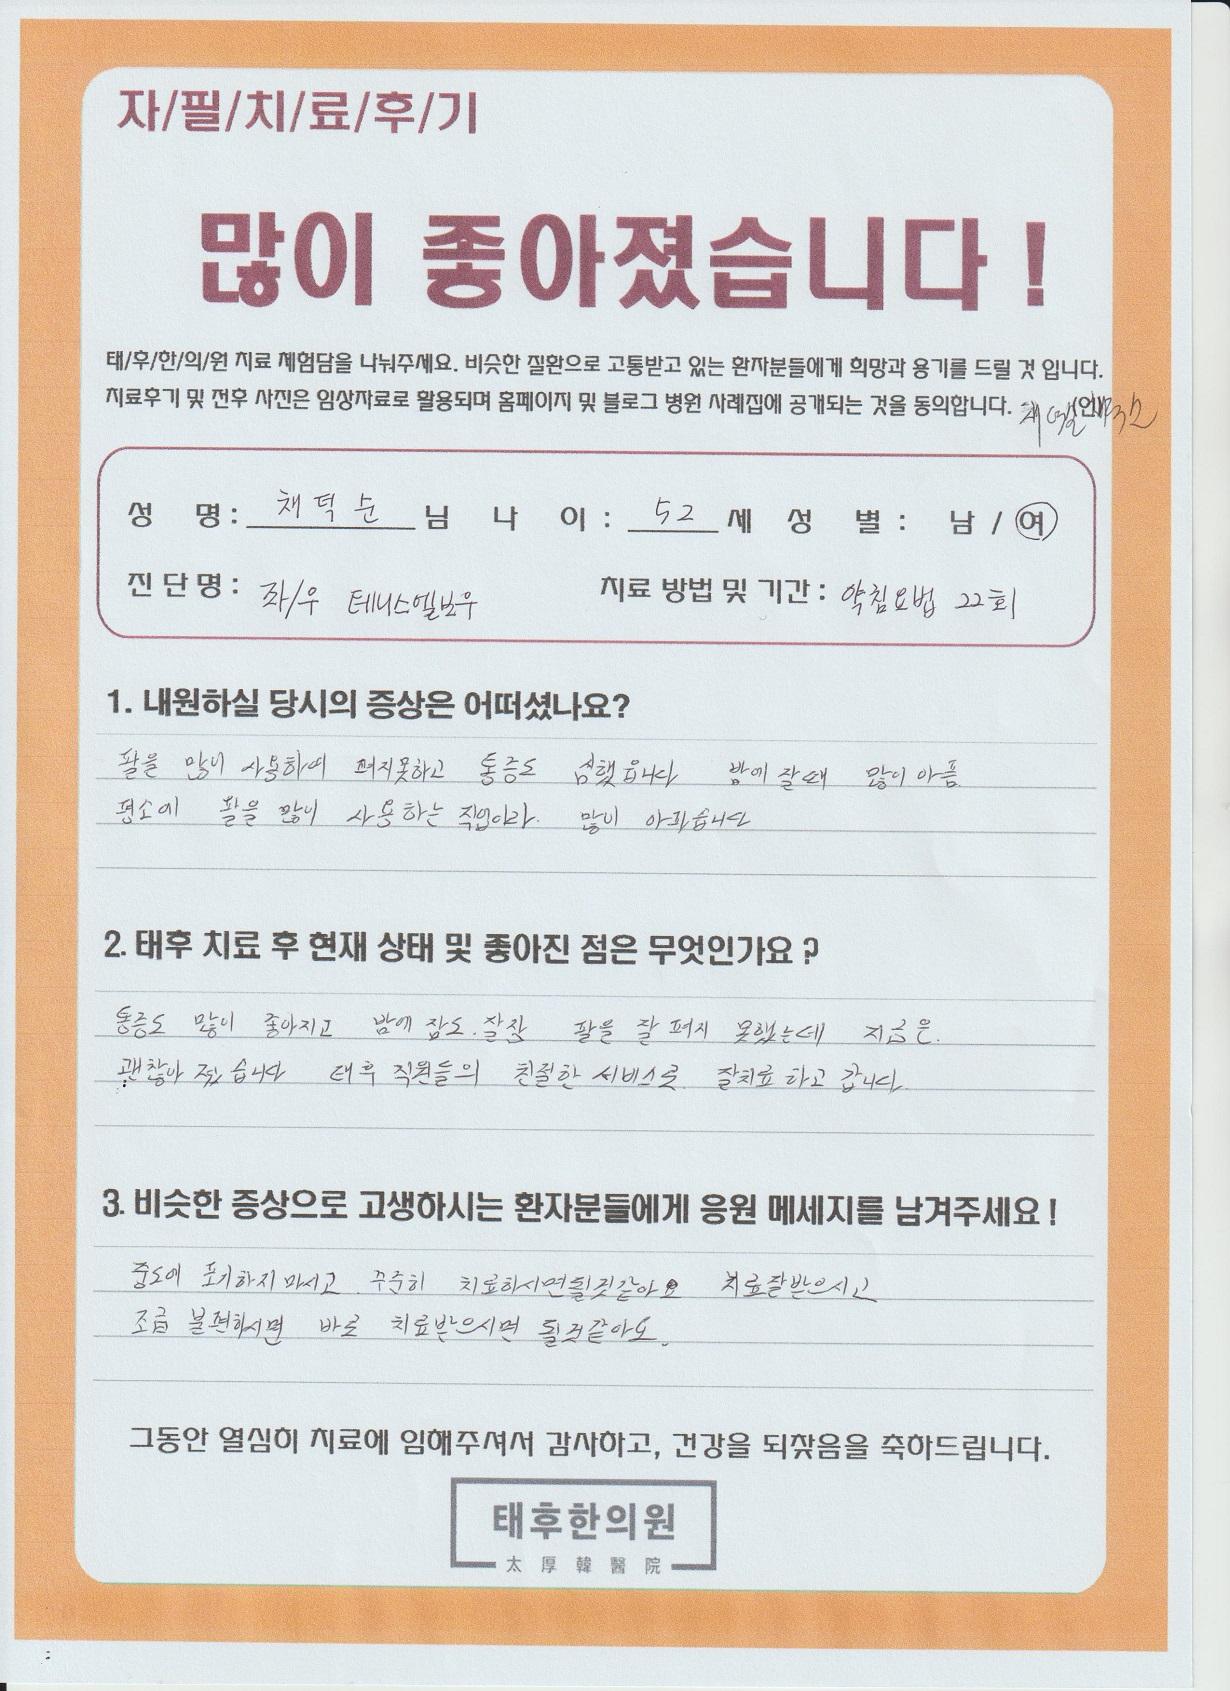 자/필/치/료/후/기
많이 좋아졌습니다!
태/후/한/의/원 치료 체험담을 나눠주세요. 비슷한 질환으로 고통받고 있는 환자분들에게 희망과 용기를 드릴 것 입니다.
치료후기 및 전후 사진은 임상자료로 활용되며 홈페이지 및 블로그 병원 사례집에 공개되는 것을 동의합니다.
성 명 : 채덕순 님 나 이 : 52 세 성 별 : 남 / 여
진 단 명 : 좌/우 테니스엘보우 치료 방법 및 기간 : 약침요법 22회
1. 내원하실 당시의 증상은 어떠셨나요?
팔을 많이 사용하여 펴지못하고 통증도 심했읍니다 밤에 잘때 많이 아픔
평소에 팔을 많이 사용하는 직업이라. 많이 아파습니다
2. 태후 치료 후 현재 상태 및 좋아진 점은 무엇인가요?
통증도 많이 좋아지고 밤에 잠도.잘잠 팔을 잘 펴지 못했는데 지금은.
괜찮아 졌습니다 태후 직원들의 친절한 서비스로 잘치료 하고 갑니다.
3. 비슷한 증상으로 고생하시는 환자분들에게 응원 메세지를 남겨주세요!
중도에 포기하지마시고 꾸준히 치료하시면될것같아요 치료잘받으시고
조금 불편하시면 바로 치료받으시면 될것같아요.
그동안 열심히 치료에 임해주셔서 감사하고, 건강을 되찾음을 축하드립니다.
태후한의원
太厚韓醫院